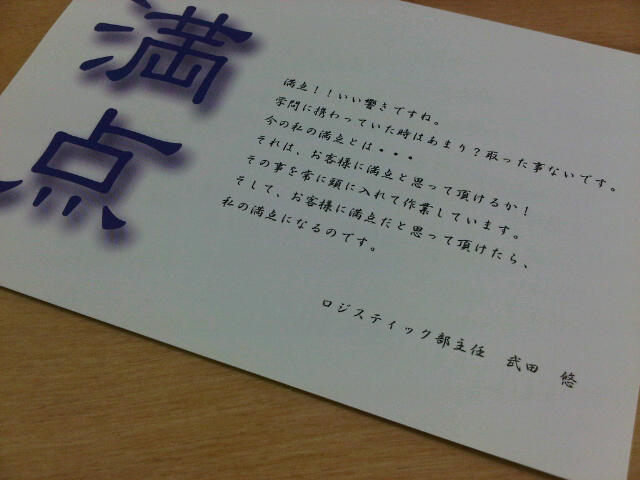 満点
満点！！いい響きですね。
学問に携わっていた時はあまり？取った事ないです。
今の私の満点とは・・・
それは、お客様に満点と思って頂けるか！
その事を常に頭に入れて作業しています。
そして、お客様に満点だと思って頂けたら、
私の満点になるのです。
ロジスティック部主任　武田　悠